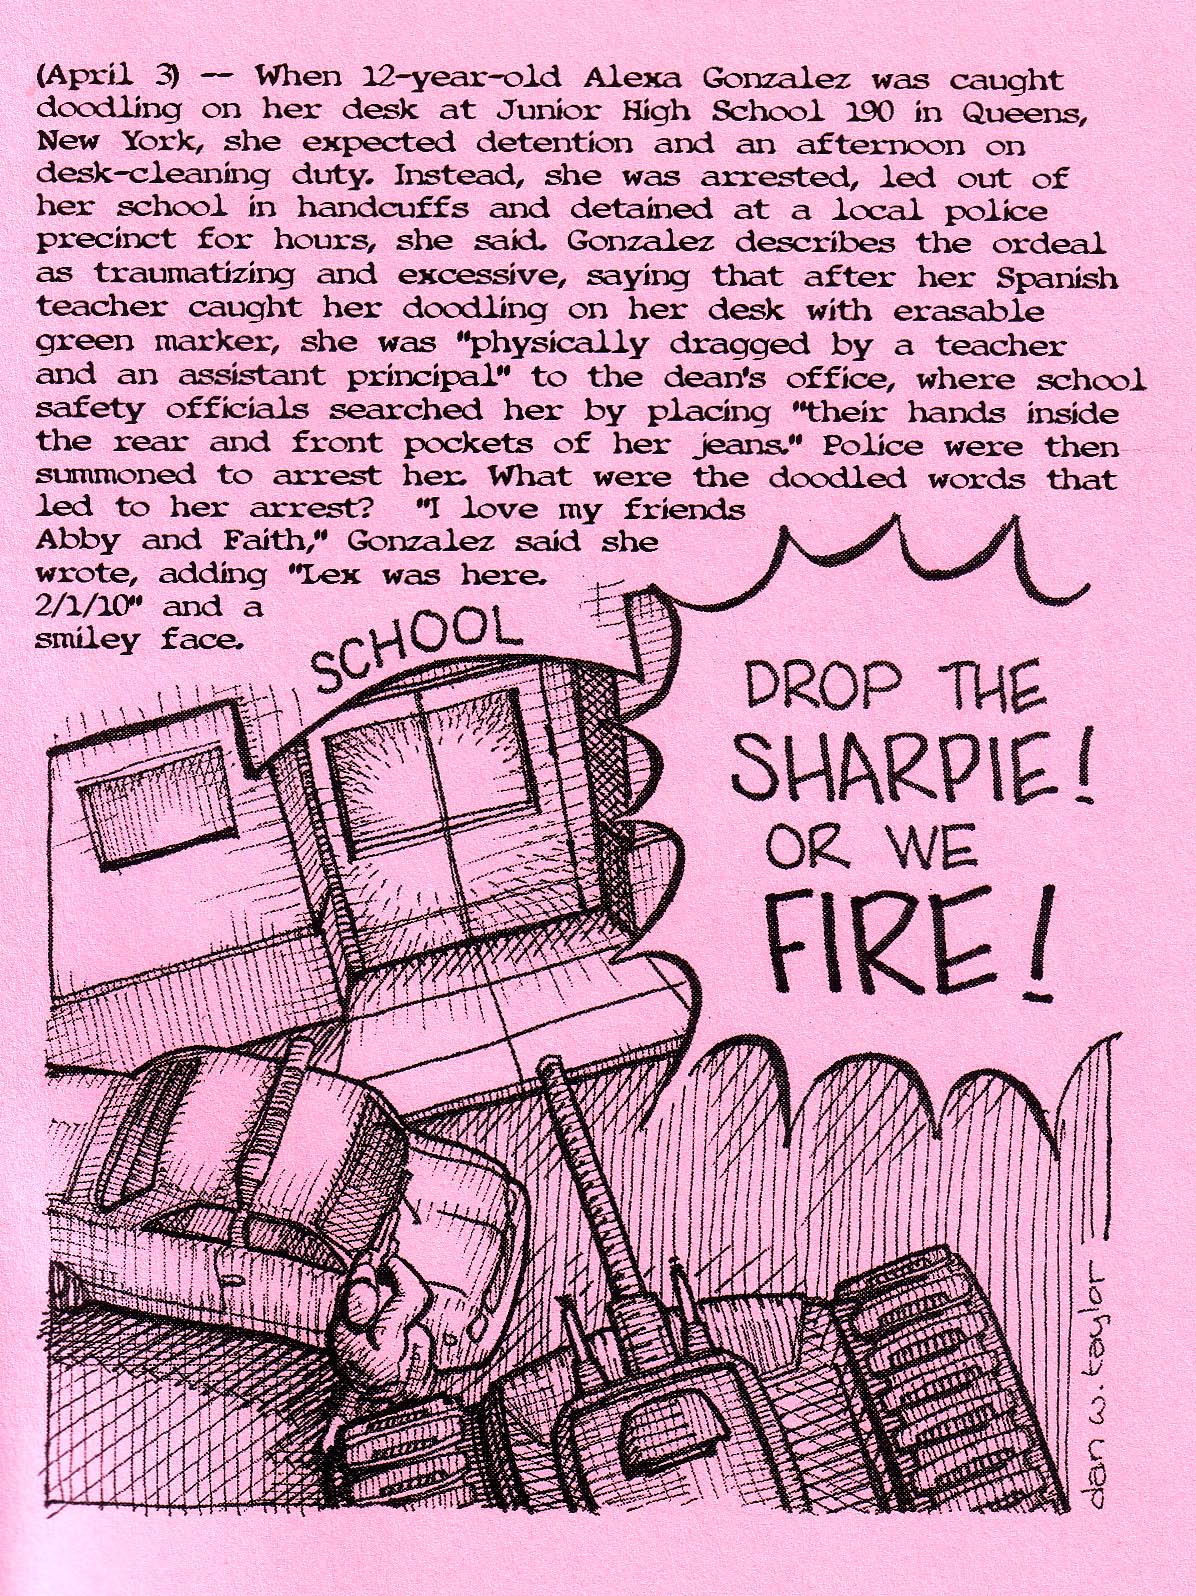 (April 3) -- When 12-year-old Alexa Gonzalez was caught
doodling on her desk at Junior High School 190 in Queens,
New York, she expected detention and an afternoon on
desk-cleaning duty. Instead, she was arrested, led out of
her school in handcuffs and detained at a local police
precinct for hours, she said. Gonzalez describes the ordeal
as traumatizing and excessive, saying that after her Spanish
teacher caught her doodling on her desk with erasable
green marker, she was "physically dragged by a teacher
and an assistant principal" to the dean's office, where school
safety officials searched her by placing "their hands inside
the rear and front pockets of her jeans." Police were then
summoned to arrest her. What were the doodled words that
led to her arrest? "I love my friends
Abby and Faith," Gonzalez said she
wrote, adding "Lex was here.
2/1/10" and a
smiley face.
SCHOOL
DROP THE
SHARPIE!
OR WE
FIRE!
dan w. taylor